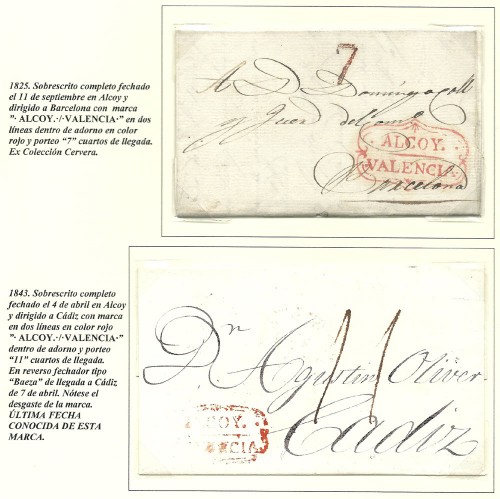 1825. Sobrescrito completo fechado
el 11 de septiembre en Alcoy y
dirigido a Barcelona con marca
"· ALCOY.·/·VALENCIA·" en dos
líneas dentro de adorno en color
rojo y porteo "7" cuartos de llegada.
Ex Colección Cervera.
7
A D. Domingo
y Juan del
ALCOY.
VALENCIA
Barcelona
1843. Sobrescrito completo
fechado el 4 de abril en Alcoy
y dirigido a Cádiz con marca
en dos líneas en color rojo
"· ALCOY.·/·VALENCIA·"
dentro de adorno y porteo
"11" cuartos de llegada.
En reverso fechador tipo
"Baeza" de llegada a Cádiz
de 7 de abril. Nótese el
desgaste de la marca.
ÚLTIMA FECHA
CONOCIDA DE ESTA
MARCA.
11
Dn Agustin Oliver
ALCOY.
VALENCIA
Cadiz